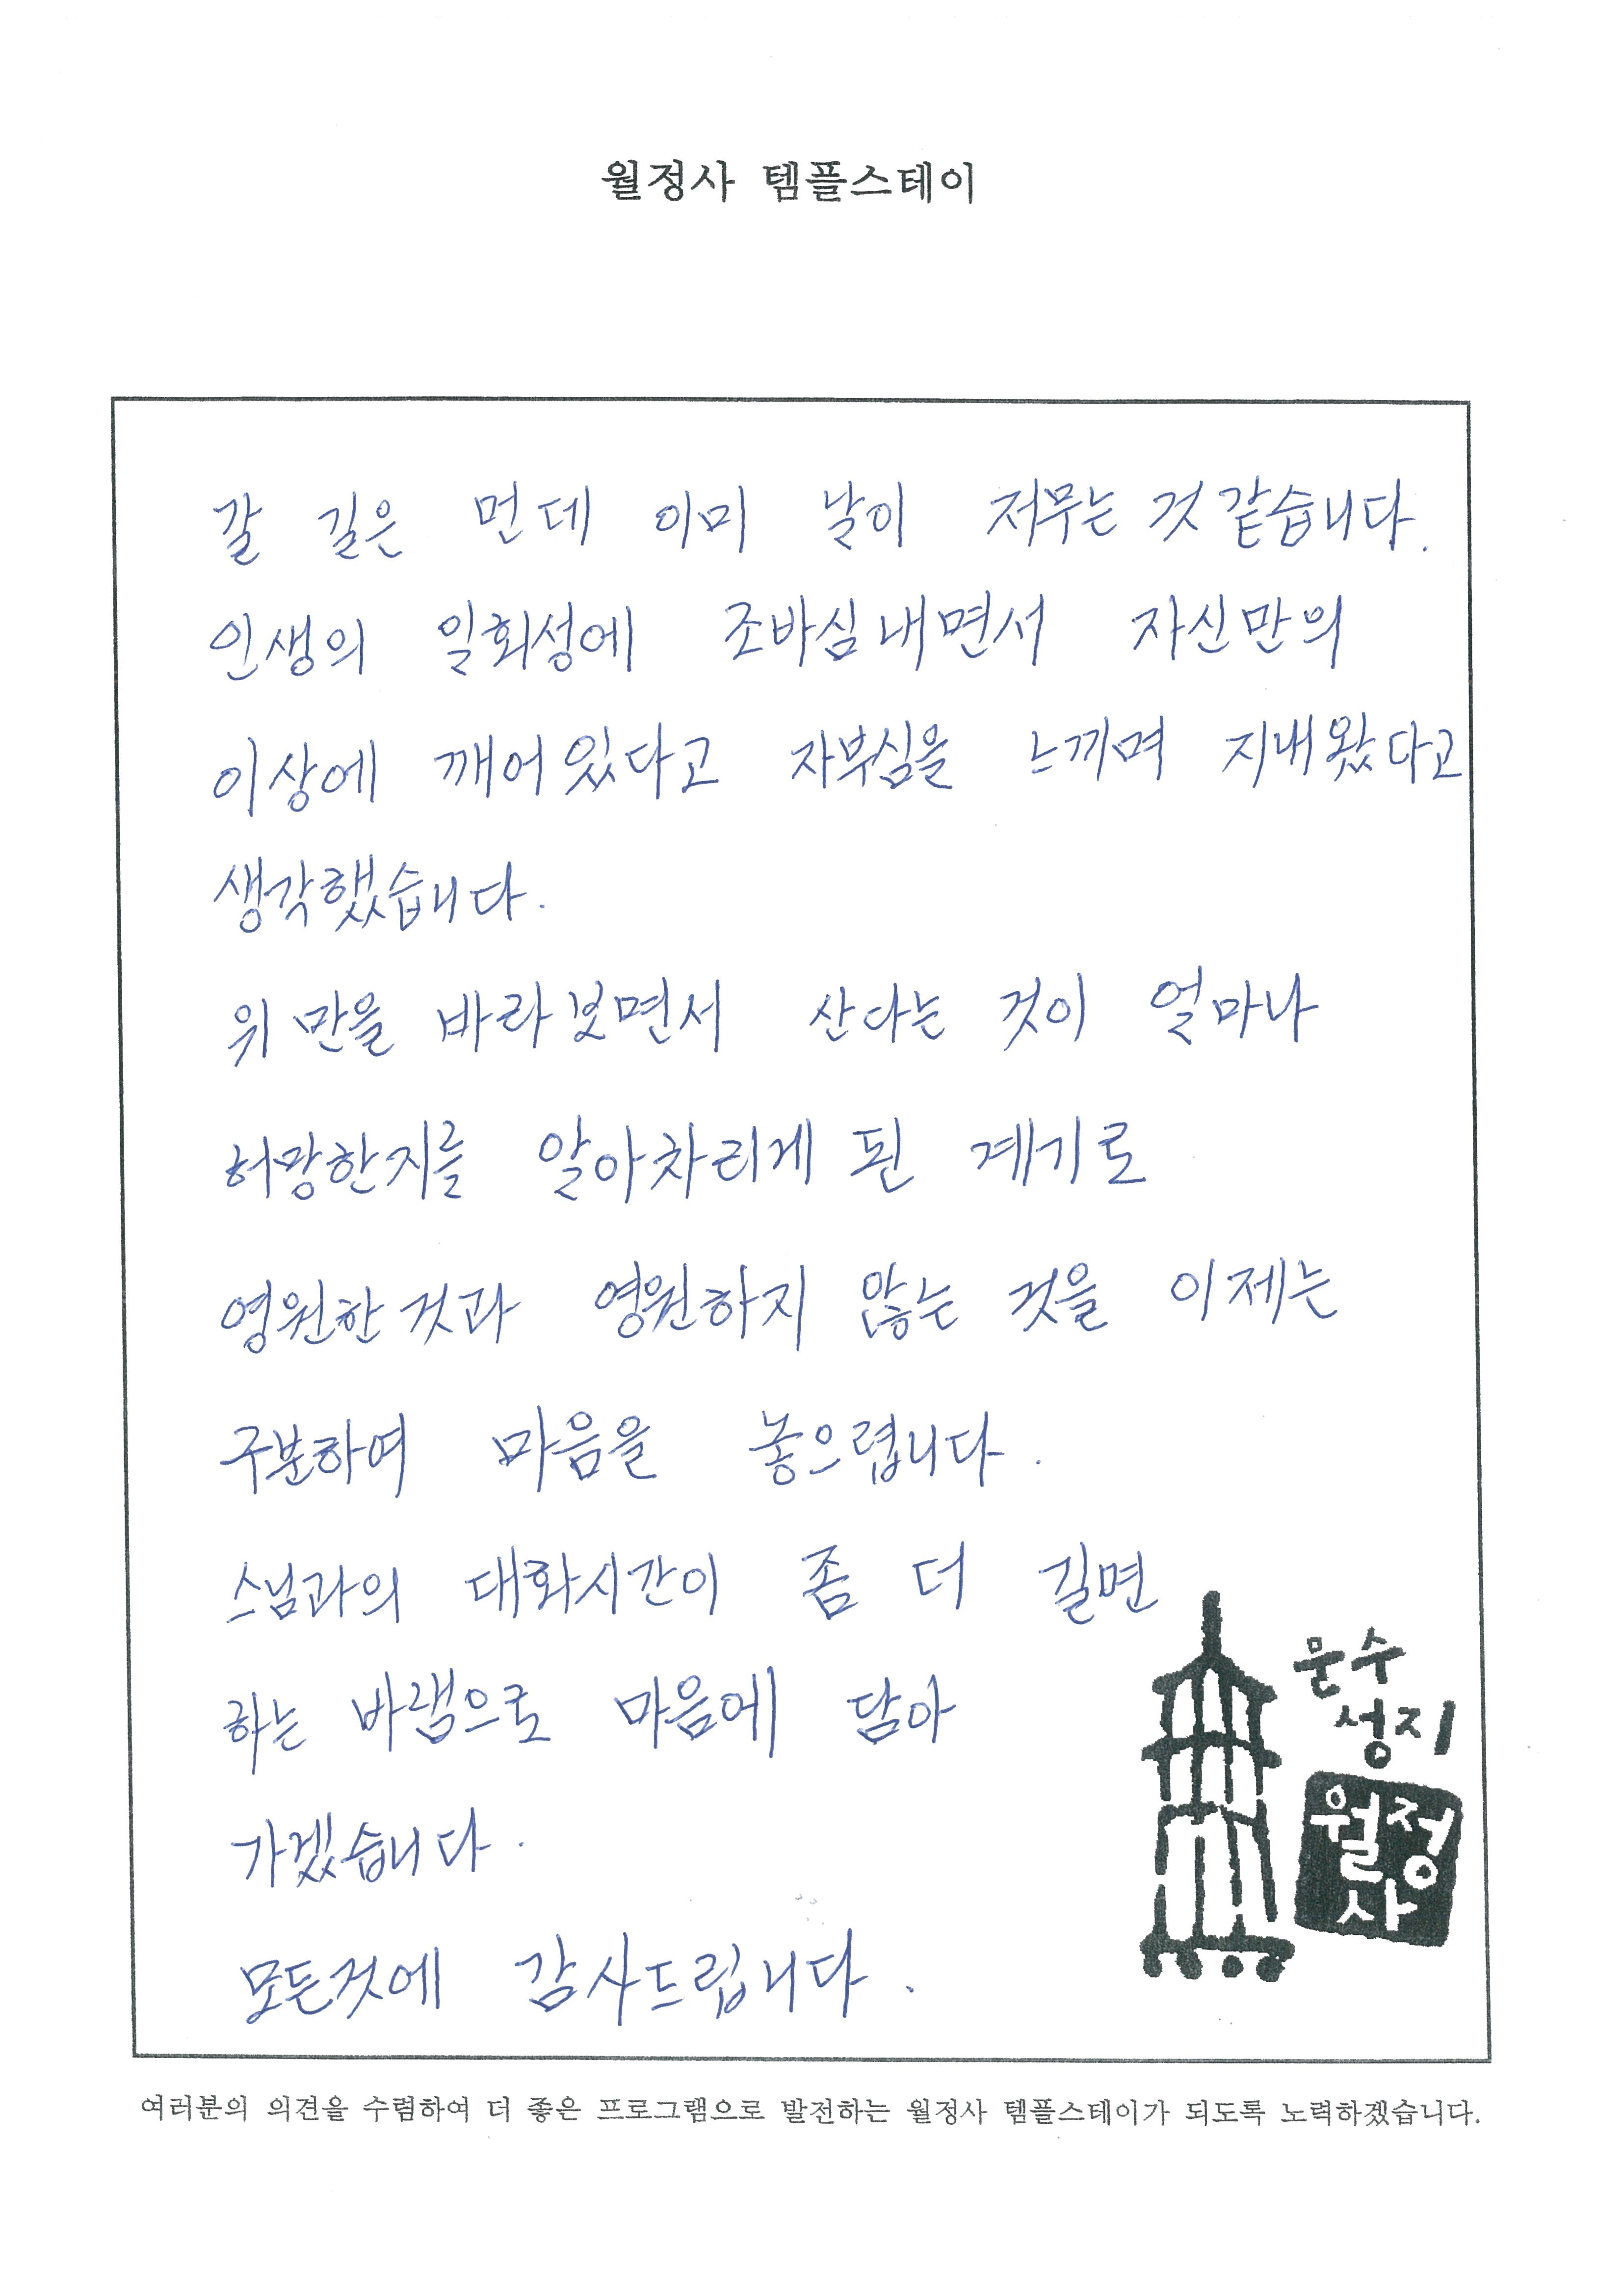 월정사 템플스테이
갈 길은 먼데 이미 날이 저무는 것 같습니다.
인생의 일회성에 조바심내면서 자신만의
이상에 깨어있다고 자부심을 느끼며 지내왔다고
생각했습니다.
위만을 바라보면서 산다는 것이 얼마나
허망한지를 알아차리게 된 계기로
영원한 것과 영원하지 않는 것을 이제는
구분하여 마음을 놓으렵니다.
스님과의 대화시간이 좀 더 길면
하는 바램으로 마음에 담아
가겠습니다.
모든것에 감사드립니다.
문수
성지
월정
사
여러분의 의견을 수렴하여 더 좋은 프로그램으로 발전하는 월정사 템플스테이가 되도록 노력하겠습니다.